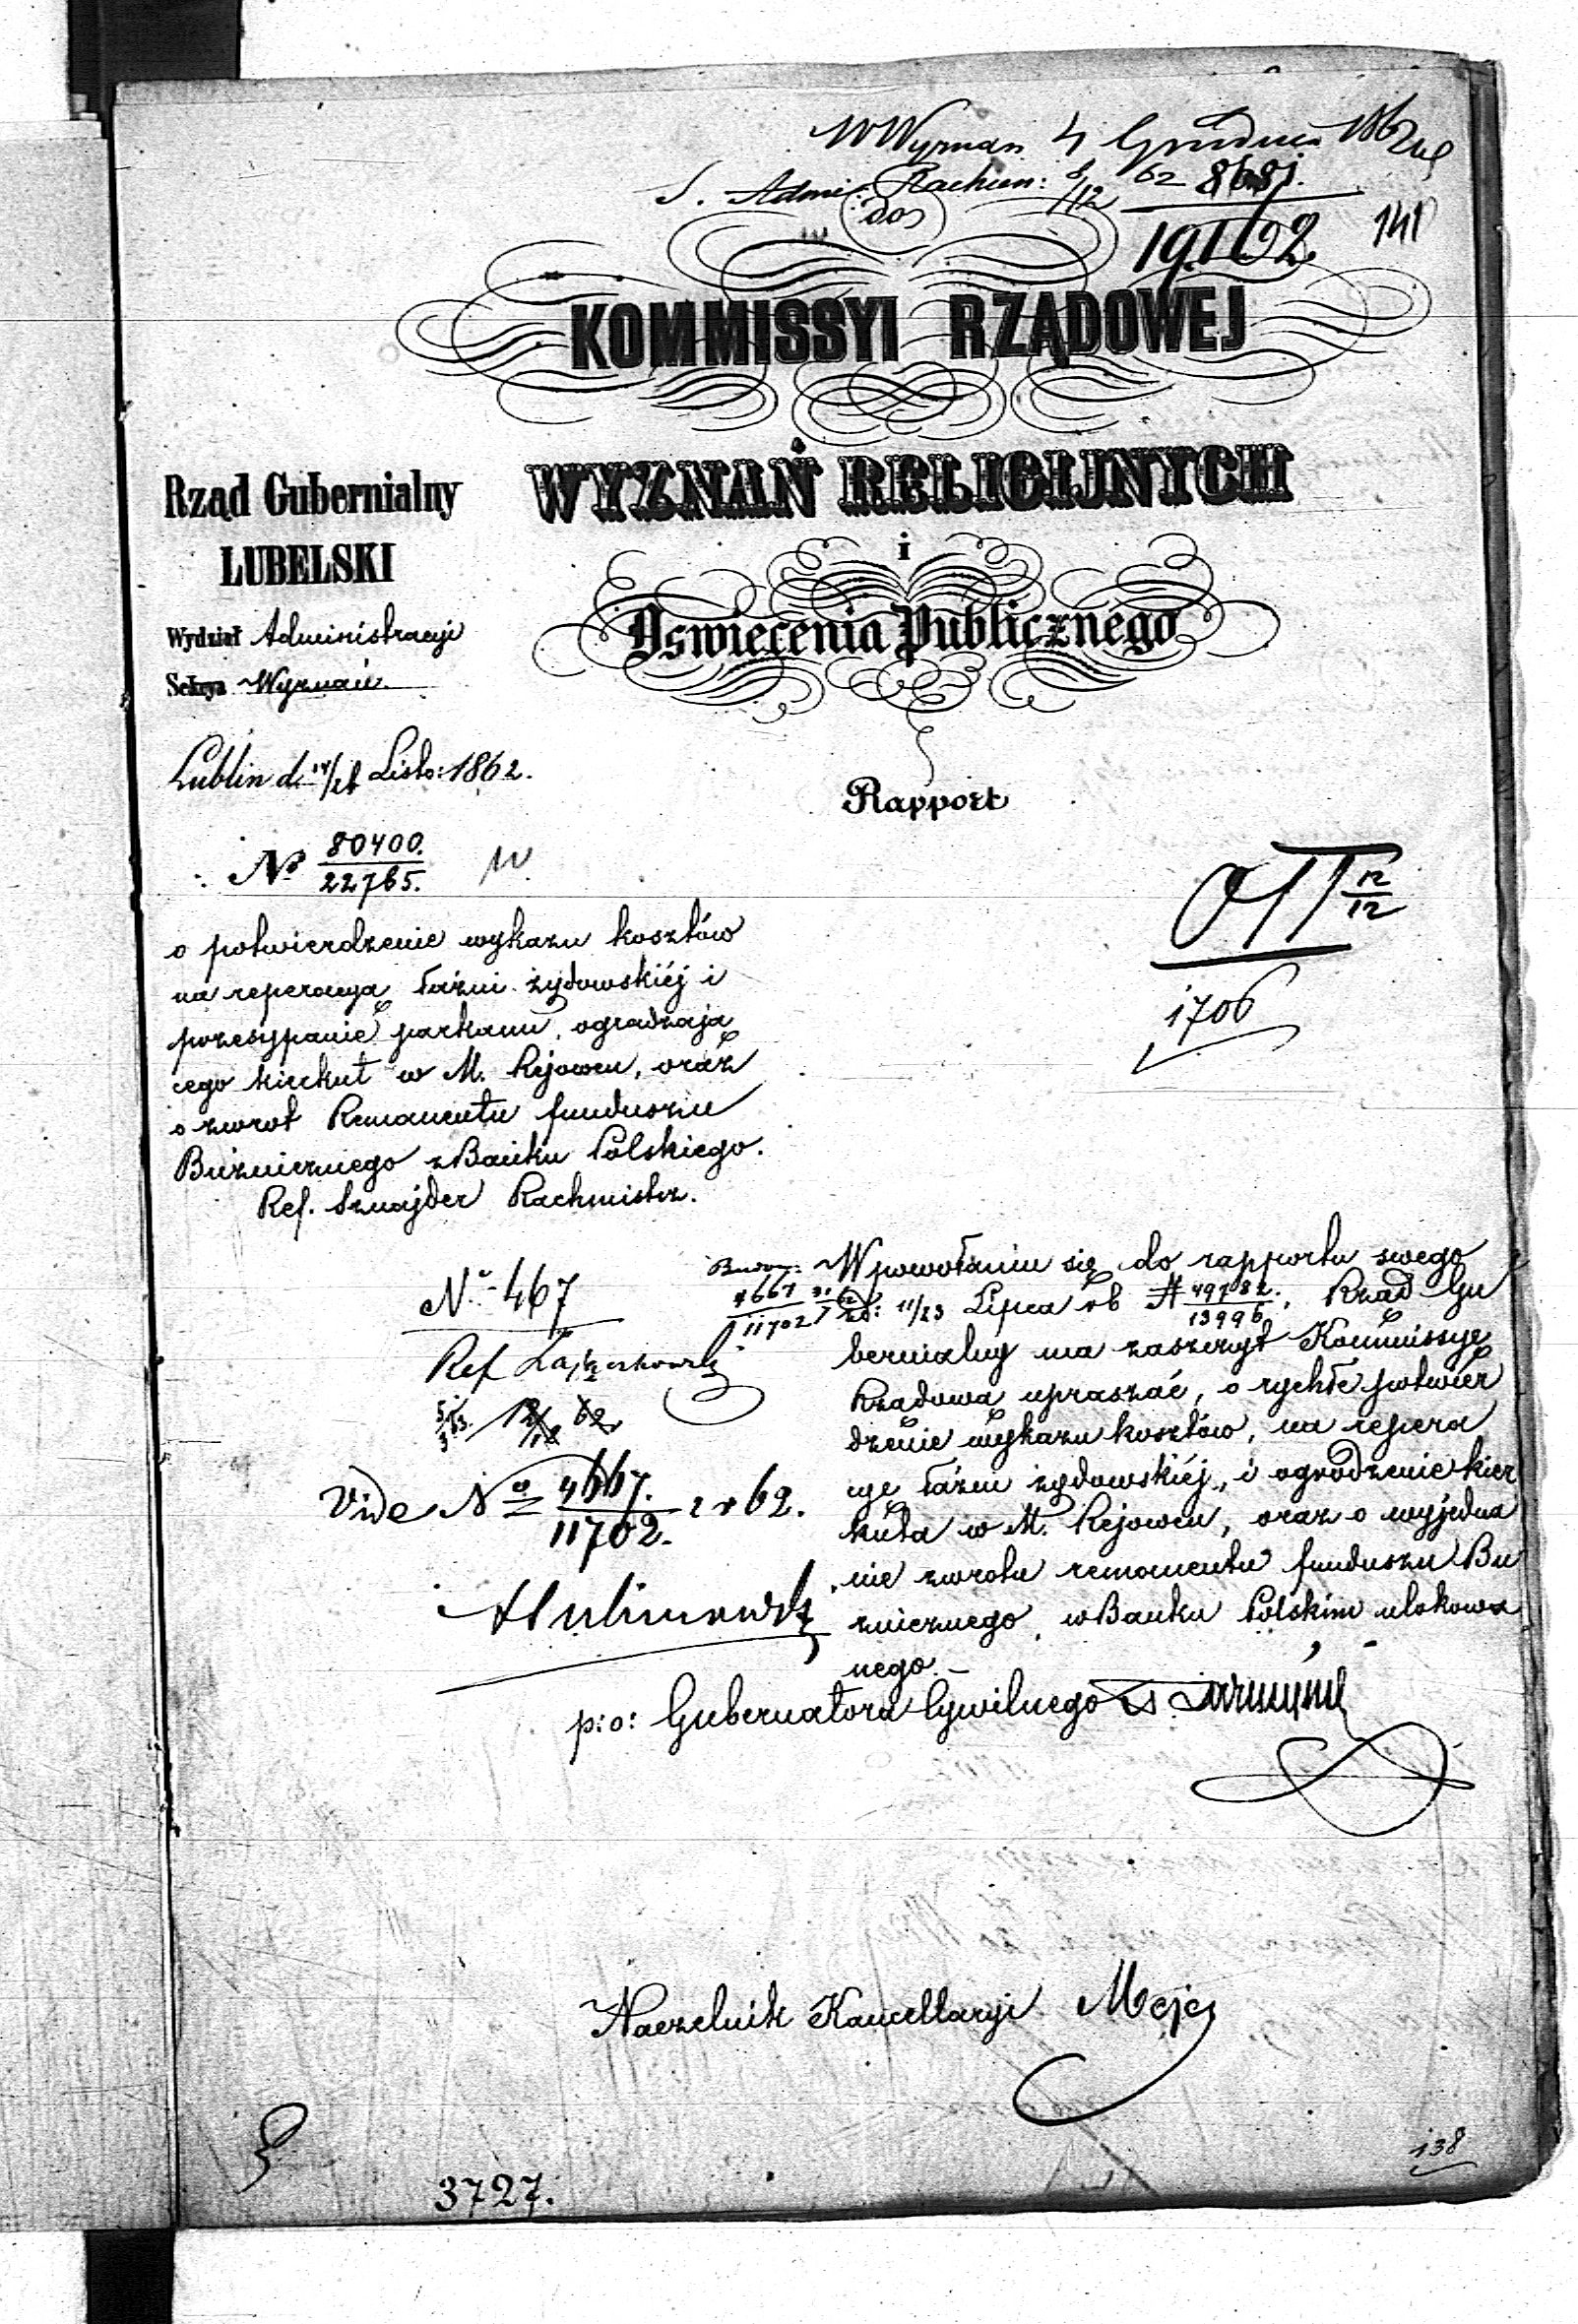 W Wyznań 4 Grudnia 1862
S. Admi: Rachun: 62 8681.
19162
141
do
KOMMISSYI RZĄDOWEJ
WYZNAŃ RELIGIJNYCH
i
Oswiecenia Publicznego
Rapport
Rząd Gubernialny
LUBELSKI
Wydział Administracyi
Sekcya Wyznań.
Lublin d. 14/26 Listo: 1862.
No 80400./22765. W.
12/12
1706
o potwierdzenie wykazu kosztów
na reperacyą łaźni żydowskiéj i
przesypanie parkanu, ogradzają
cego kierkut w M. Rejowcu, oraz
o zwrot Remanentu funduszu
Bużnicznego z Banku Polskiego.
Ref. Sznajder Rachmistrz.
No 467
Ref
12/12 62
Vide No 4667./11702. z r 62.
4667/11702
W powołaniu się do rapportu swego
zd: 11/23 Lipca rb # 49782./13996, Rząd Gu
bernialny ma zaszczyt Kommissyę
Rządową upraszać, o rychłe potwier
dzenie wykazu kosztów, na repera
cye łaźni żydowskiéj, i ogrodzenie kier
kuta w M. Rejowcu, oraz o wyjedna
nie zwrotu remanentu funduszu Bu
żnicznego, w Banku Polskim ulokowa
nego.
p:o: Gubernatora Cywilnego
Naczelnik Kancellaryi
3727.
138